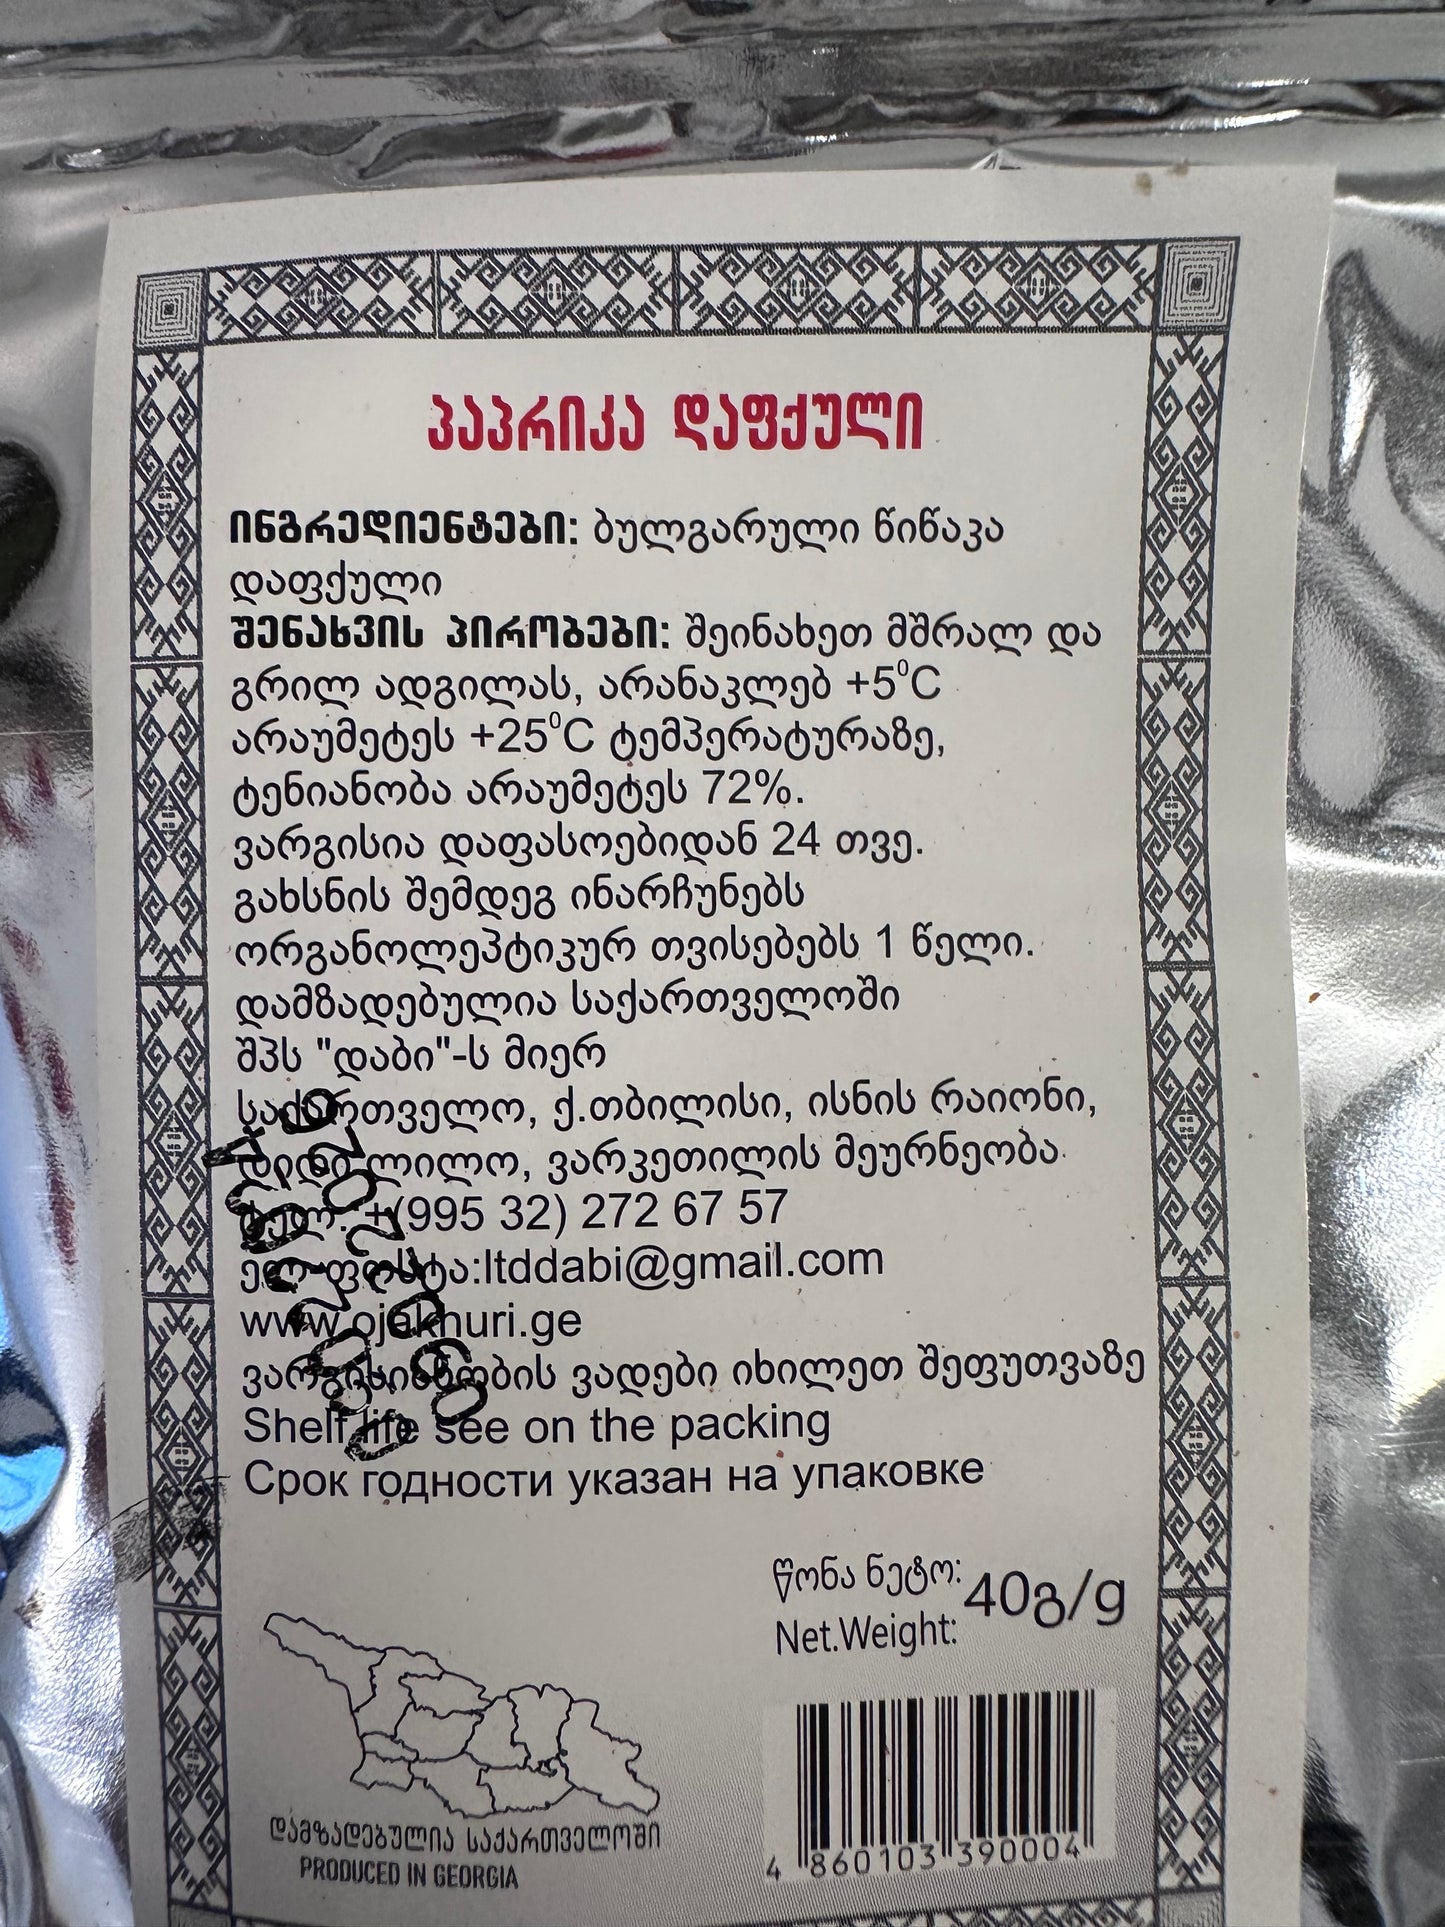 პაპრიკა დაფქული
ინგრედიენტები: ბულგარული წიწაკა
დაფქული
შენახვის პირობები: შეინახეთ მშრალ და
გრილ ადგილას, არანაკლებ +5⁰C
არაუმეტეს +25⁰C ტემპერატურაზე,
ტენიანობა არაუმეტეს 72%.
ვარგისია დაფასოებიდან 24 თვე.
გახსნის შემდეგ ინარჩუნებს
ორგანოლეპტიკურ თვისებებს 1 წელი.
დამზადებულია საქართველოში
შპს "დაბი"-ს მიერ
საქართველო, ქ.თბილისი, ისნის რაიონი,
დიდი ლილო, ვარკეთილის მეურნეობა.
ტელ: +(995 32) 272 67 57
ელ-ფოსტა:ltddabi@gmail.com
www.ojakhuri.ge
ვარგისიანობის ვადები იხილეთ შეფუთვაზე
Shelf life see on the packing
Срок годности указан на упаковке
წონა ნეტო: 40გ/g
Net.Weight:
დამზადებულია საქართველოში
PRODUCED IN GEORGIA
4 860103 390004